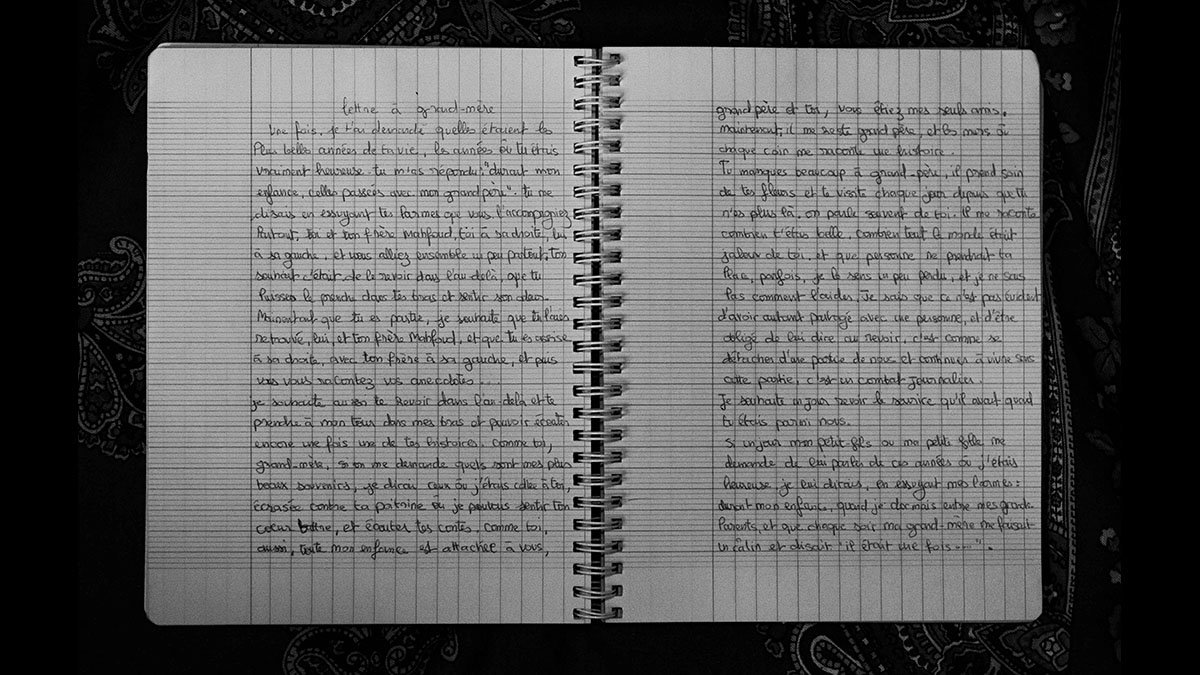 lettre à grand-mère
Une fois, je t'ai demandé quelles étaient les
Plus belles années de ta vie, les années où tu étais
vraiment heureuse. tu m'as répondu: "durant mon
enfance, celles passées avec mon grand père". tu me
disais en essuyant tes larmes que vous l'accompagniez
Partout, toi et ton frère Mahfoud, toi à sa droite, lui
à sa gauche, et vous alliez ensemble un peu partout, ton
souhait c'était de le revoir dans l'au delà, que tu
Puisses le prendre dans tes bras et sentir son odeur.
Maintenant que tu es partie, je souhaite que tu l'aies
retrouvé, lui, et ton frère Mahfoud, et que tu es assise
à sa droite, avec ton frère à sa gauche, et puis
vous vous racontez vos anecdotes ...
je souhaite aussi te Revoir dans l'au-delà et te
prendre à mon tour dans mes bras et pouvoir écouter
encore une fois une de tes histoires. Comme toi,
grand-mère, si on me demande quels sont mes plus
beaux souvenirs, je dirai ceux où j'étais collée à toi,
écrasée contre ta poitrine où je pouvais sentir ton
coeur battre, et écouter tes contes. Comme toi,
aussi, toute mon enfance est attachée à vous,
grand père et toi, vous étiez mes seuls amis.
maintenant, il me reste grand père, et les murs où
chaque coin me raconte une histoire.
Tu manques beaucoup à grand-père, il prend soin
de tes fleurs et te visite chaque jour depuis que tu
n'es plus là, on parle souvent de toi. il me raconte
combien t'étais belle. Combien tout le monde était
jaloux de toi, et que personne ne prendrait ta
Place, parfois, je le sens un peu perdu, et je ne sais
Pas comment l'aider. Je sais que ce n'est pas évident
d'avoir autant partagé avec une personne, et d'être
obligé de lui dire au revoir, c'est comme se
détacher d'une partie de nous et continuer à vivre sans
cette partie, c'est un combat journalier.
Je souhaite un jour revoir le sourire qu'il avait quand
tu étais parmi nous.
Si un jour mon petit fils ou ma petite fille me
demande de lui parler de ces années où j'étais
heureuse je lui dirais, en essuyant mes larmes:
durant mon enfance, quand je dormais entre mes grands
Parents, et que chaque soir ma grand-mère me faisait
un câlin et disait "il était une fois ....".